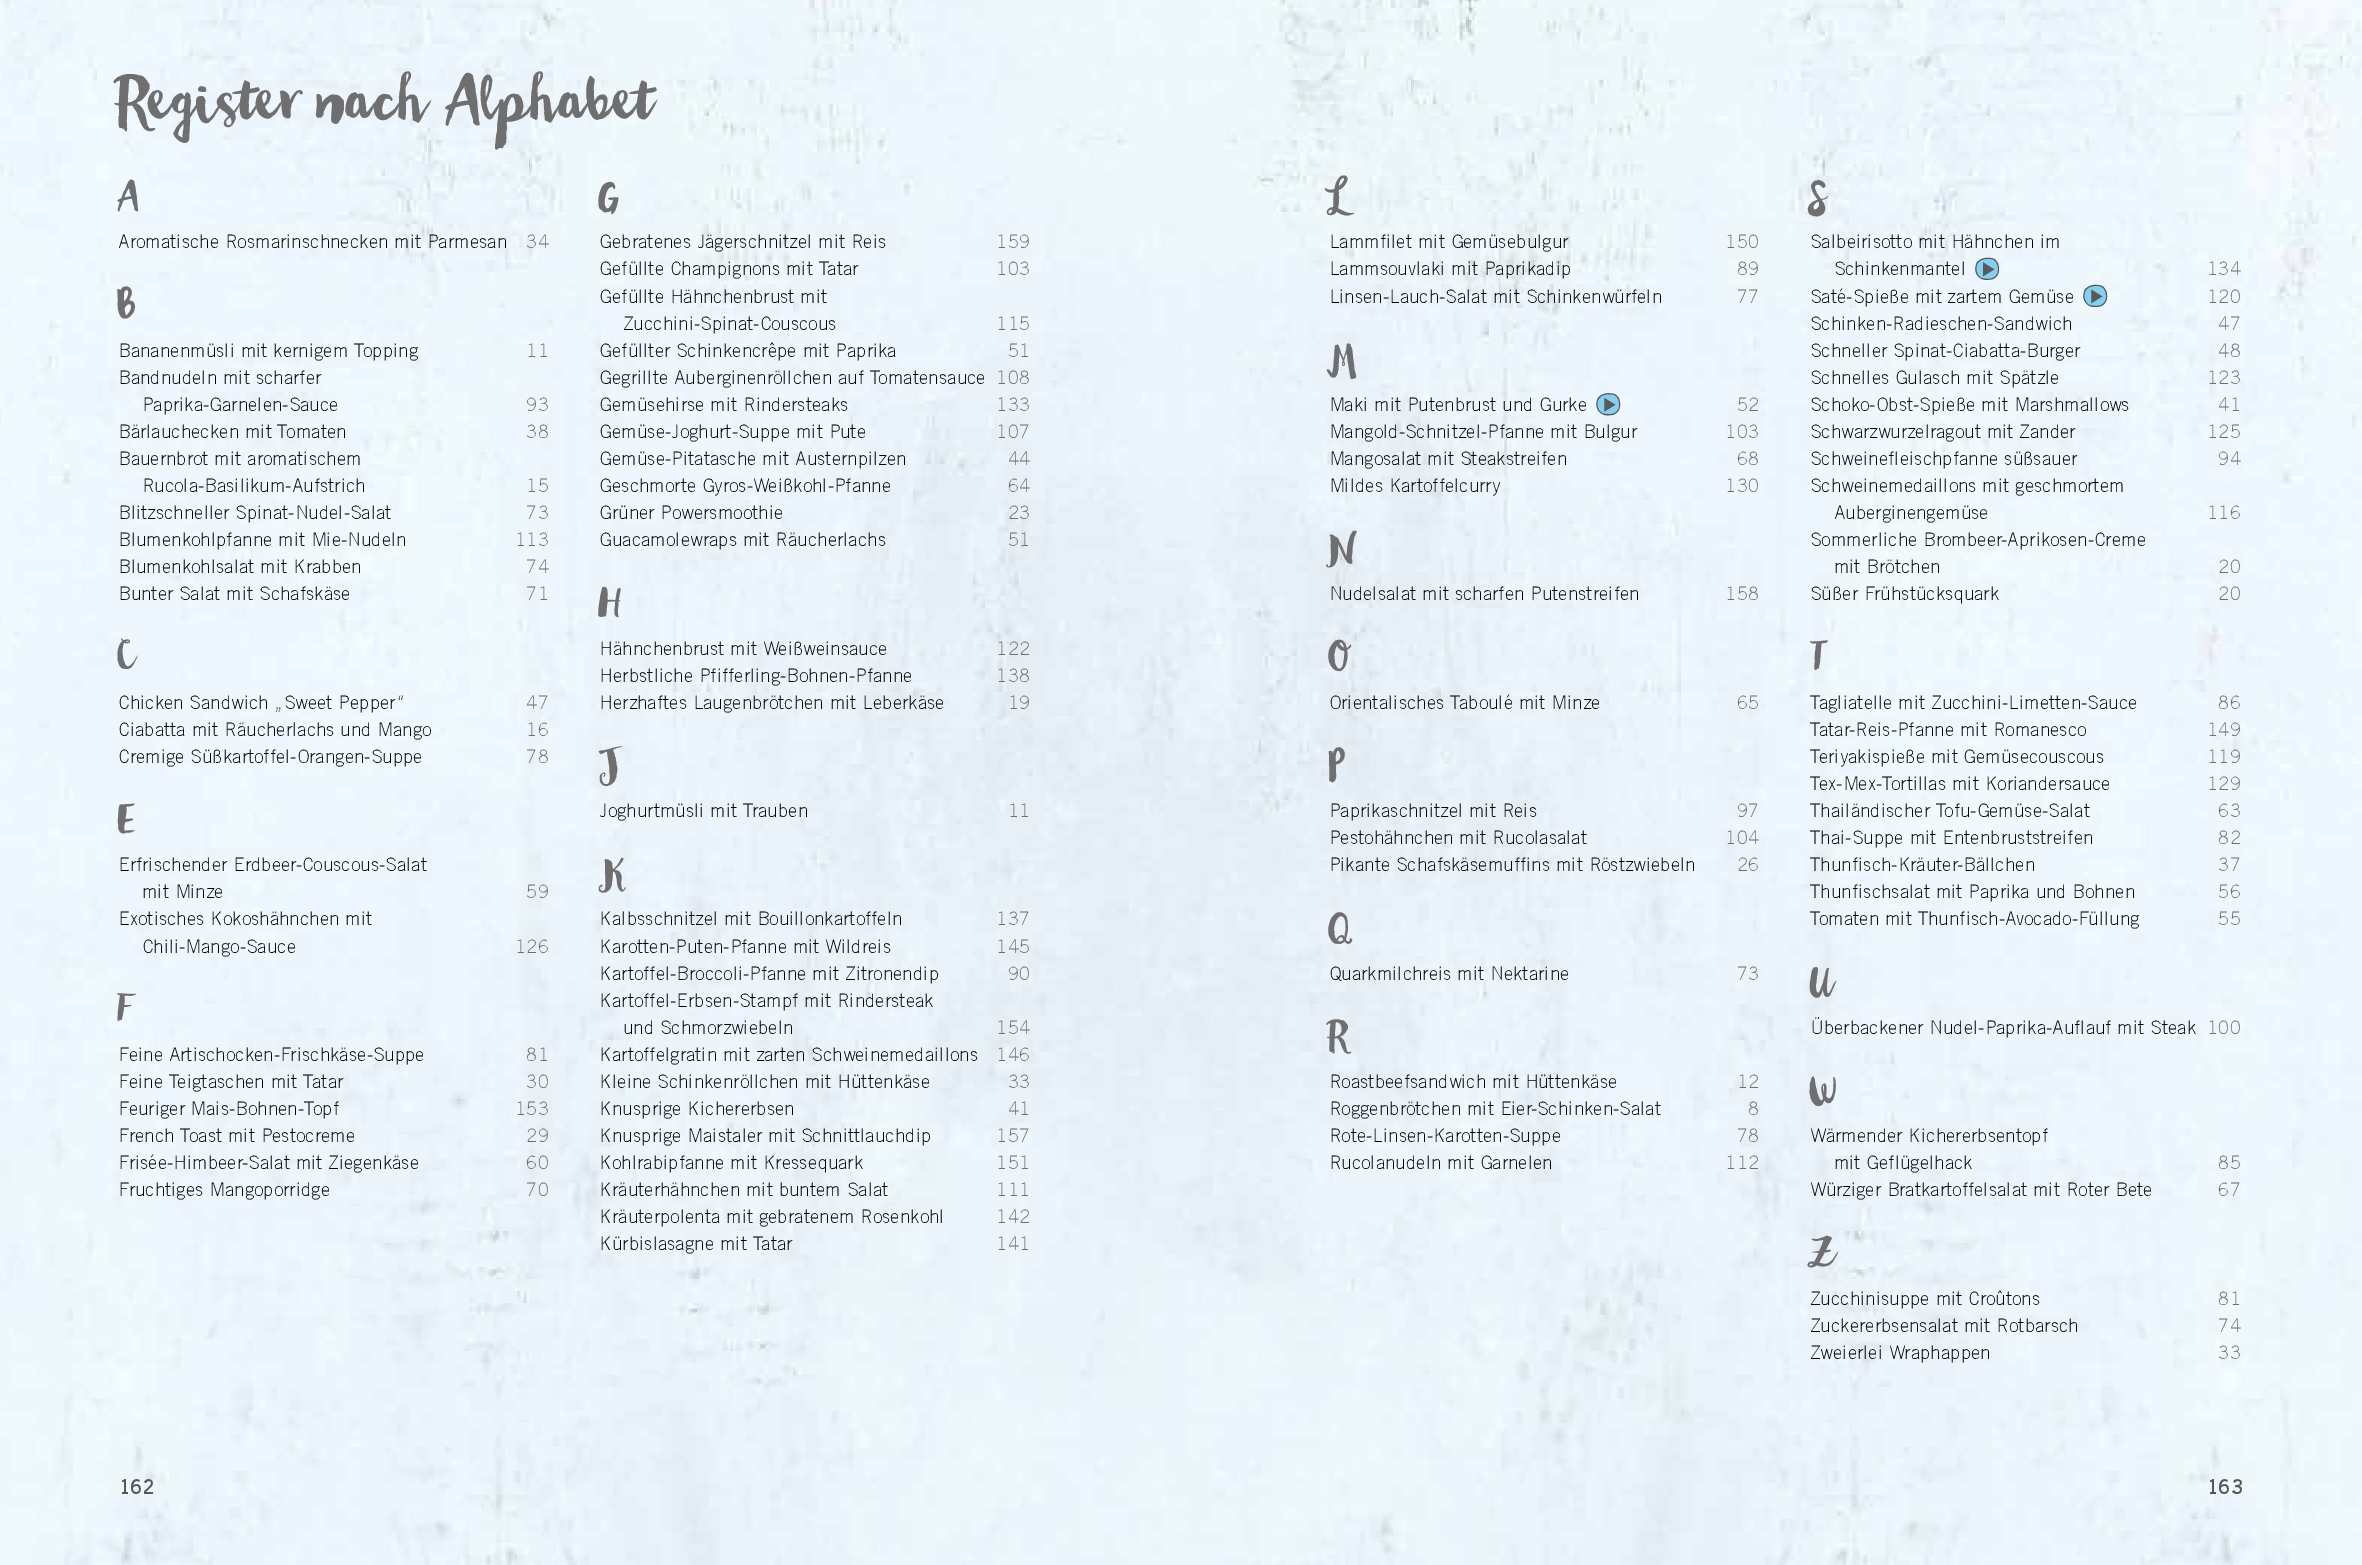 Register nach Alphabet
A
Aromatische Rosmarinschnecken mit Parmesan 34
B
Bananenmüsli mit kernigem Topping 11
Bandnudeln mit scharfer
Paprika-Garnelen-Sauce 93
Bärlauchecken mit Tomaten 38
Bauernbrot mit aromatischem
Rucola-Basilikum-Aufstrich 15
Blitzschneller Spinat-Nudel-Salat 73
Blumenkohlpfanne mit Mie-Nudeln 113
Blumenkohlsalat mit Krabben 74
Bunter Salat mit Schafskäse 71
C
Chicken Sandwich „Sweet Pepper“ 47
Ciabatta mit Räucherlachs und Mango 16
Cremige Süßkartoffel-Orangen-Suppe 78
E
Erfrischender Erdbeer-Couscous-Salat
mit Minze 59
Exotisches Kokoshähnchen mit
Chili-Mango-Sauce 126
F
Feine Artischocken-Frischkäse-Suppe 81
Feine Teigtaschen mit Tatar 30
Feuriger Mais-Bohnen-Topf 153
French Toast mit Pestocreme 29
Frisée-Himbeer-Salat mit Ziegenkäse 60
Fruchtiges Mangoporridge 70
G
Gebratenes Jägerschnitzel mit Reis 159
Gefüllte Champignons mit Tatar 103
Gefüllte Hähnchenbrust mit
Zucchini-Spinat-Couscous 115
Gefüllter Schinkencrêpe mit Paprika 51
Gegrillte Auberginenröllchen auf Tomatensauce 108
Gemüsehirse mit Rindersteaks 133
Gemüse-Joghurt-Suppe mit Pute 107
Gemüse-Pitatasche mit Austernpilzen 44
Geschmorte Gyros-Weißkohl-Pfanne 64
Grüner Powersmoothie 23
Guacamolewraps mit Räucherlachs 51
H
Hähnchenbrust mit Weißweinsauce 122
Herbstliche Pfifferling-Bohnen-Pfanne 138
Herzhaftes Laugenbrötchen mit Leberkäse 19
J
Joghurtmüsli mit Trauben 11
K
Kalbsschnitzel mit Bouillonkartoffeln 137
Karotten-Puten-Pfanne mit Wildreis 145
Kartoffel-Broccoli-Pfanne mit Zitronendip 90
Kartoffel-Erbsen-Stampf mit Rindersteak
und Schmorzwiebeln 154
Kartoffelgratin mit zarten Schweinemedaillons 146
Kleine Schinkenröllchen mit Hüttenkäse 33
Knusprige Kichererbsen 41
Knusprige Maistaler mit Schnittlauchdip 157
Kohlrabipfanne mit Kressequark 151
Kräuterhähnchen mit buntem Salat 111
Kräuterpolenta mit gebratenem Rosenkohl 142
Kürbislasagne mit Tatar 141
162
L
Lammfilet mit Gemüsebulgur 150
Lammsouvlaki mit Paprikadip 89
Linsen-Lauch-Salat mit Schinkenwürfeln 77
M
Maki mit Putenbrust und Gurke 52
Mangold-Schnitzel-Pfanne mit Bulgur 103
Mangosalat mit Steakstreifen 68
Mildes Kartoffelcurry 130
N
Nudelsalat mit scharfen Putenstreifen 158
O
Orientalisches Taboulé mit Minze 65
P
Paprikaschnitzel mit Reis 97
Pestohähnchen mit Rucolasalat 104
Pikante Schafskäsemuffins mit Röstzwiebeln 26
Q
Quarkmilchreis mit Nektarine 73
R
Roastbeefsandwich mit Hüttenkäse 12
Roggenbrötchen mit Eier-Schinken-Salat 8
Rote-Linsen-Karotten-Suppe 78
Rucolanudeln mit Garnelen 112
S
Salbeirisotto mit Hähnchen im
Schinkenmantel 134
Saté-Spieße mit zartem Gemüse 120
Schinken-Radieschen-Sandwich 47
Schneller Spinat-Ciabatta-Burger 48
Schnelles Gulasch mit Spätzle 123
Schoko-Obst-Spieße mit Marshmallows 41
Schwarzwurzelragout mit Zander 125
Schweinefleischpfanne süßsauer 94
Schweinemedaillons mit geschmortem
Auberginengemüse 116
Sommerliche Brombeer-Aprikosen-Creme
mit Brötchen 20
Süßer Frühstücksquark 20
T
Tagliatelle mit Zucchini-Limetten-Sauce 86
Tatar-Reis-Pfanne mit Romanesco 149
Teriyakispieße mit Gemüsecouscous 119
Tex-Mex-Tortillas mit Koriandersauce 129
Thailändischer Tofu-Gemüse-Salat 63
Thai-Suppe mit Entenbruststreifen 82
Thunfisch-Kräuter-Bällchen 37
Thunfischsalat mit Paprika und Bohnen 56
Tomaten mit Thunfisch-Avocado-Füllung 55
U
Überbackener Nudel-Paprika-Auflauf mit Steak 100
W
Wärmender Kichererbsentopf
mit Geflügelhack 85
Würziger Bratkartoffelsalat mit Roter Bete 67
Z
Zucchinisuppe mit Croûtons 81
Zuckererbsensalat mit Rotbarsch 74
Zweierlei Wraphappen 33
163